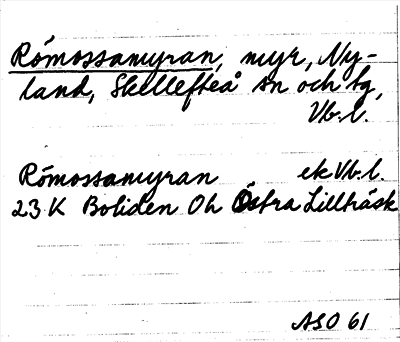 Römossamyran, myr, Ny-
land, Skellefteå sn och tg,
Vb. l.
Römossamyran ekVb. l.
23 K Boliden Oh Östra Lillträsk
ASO 61